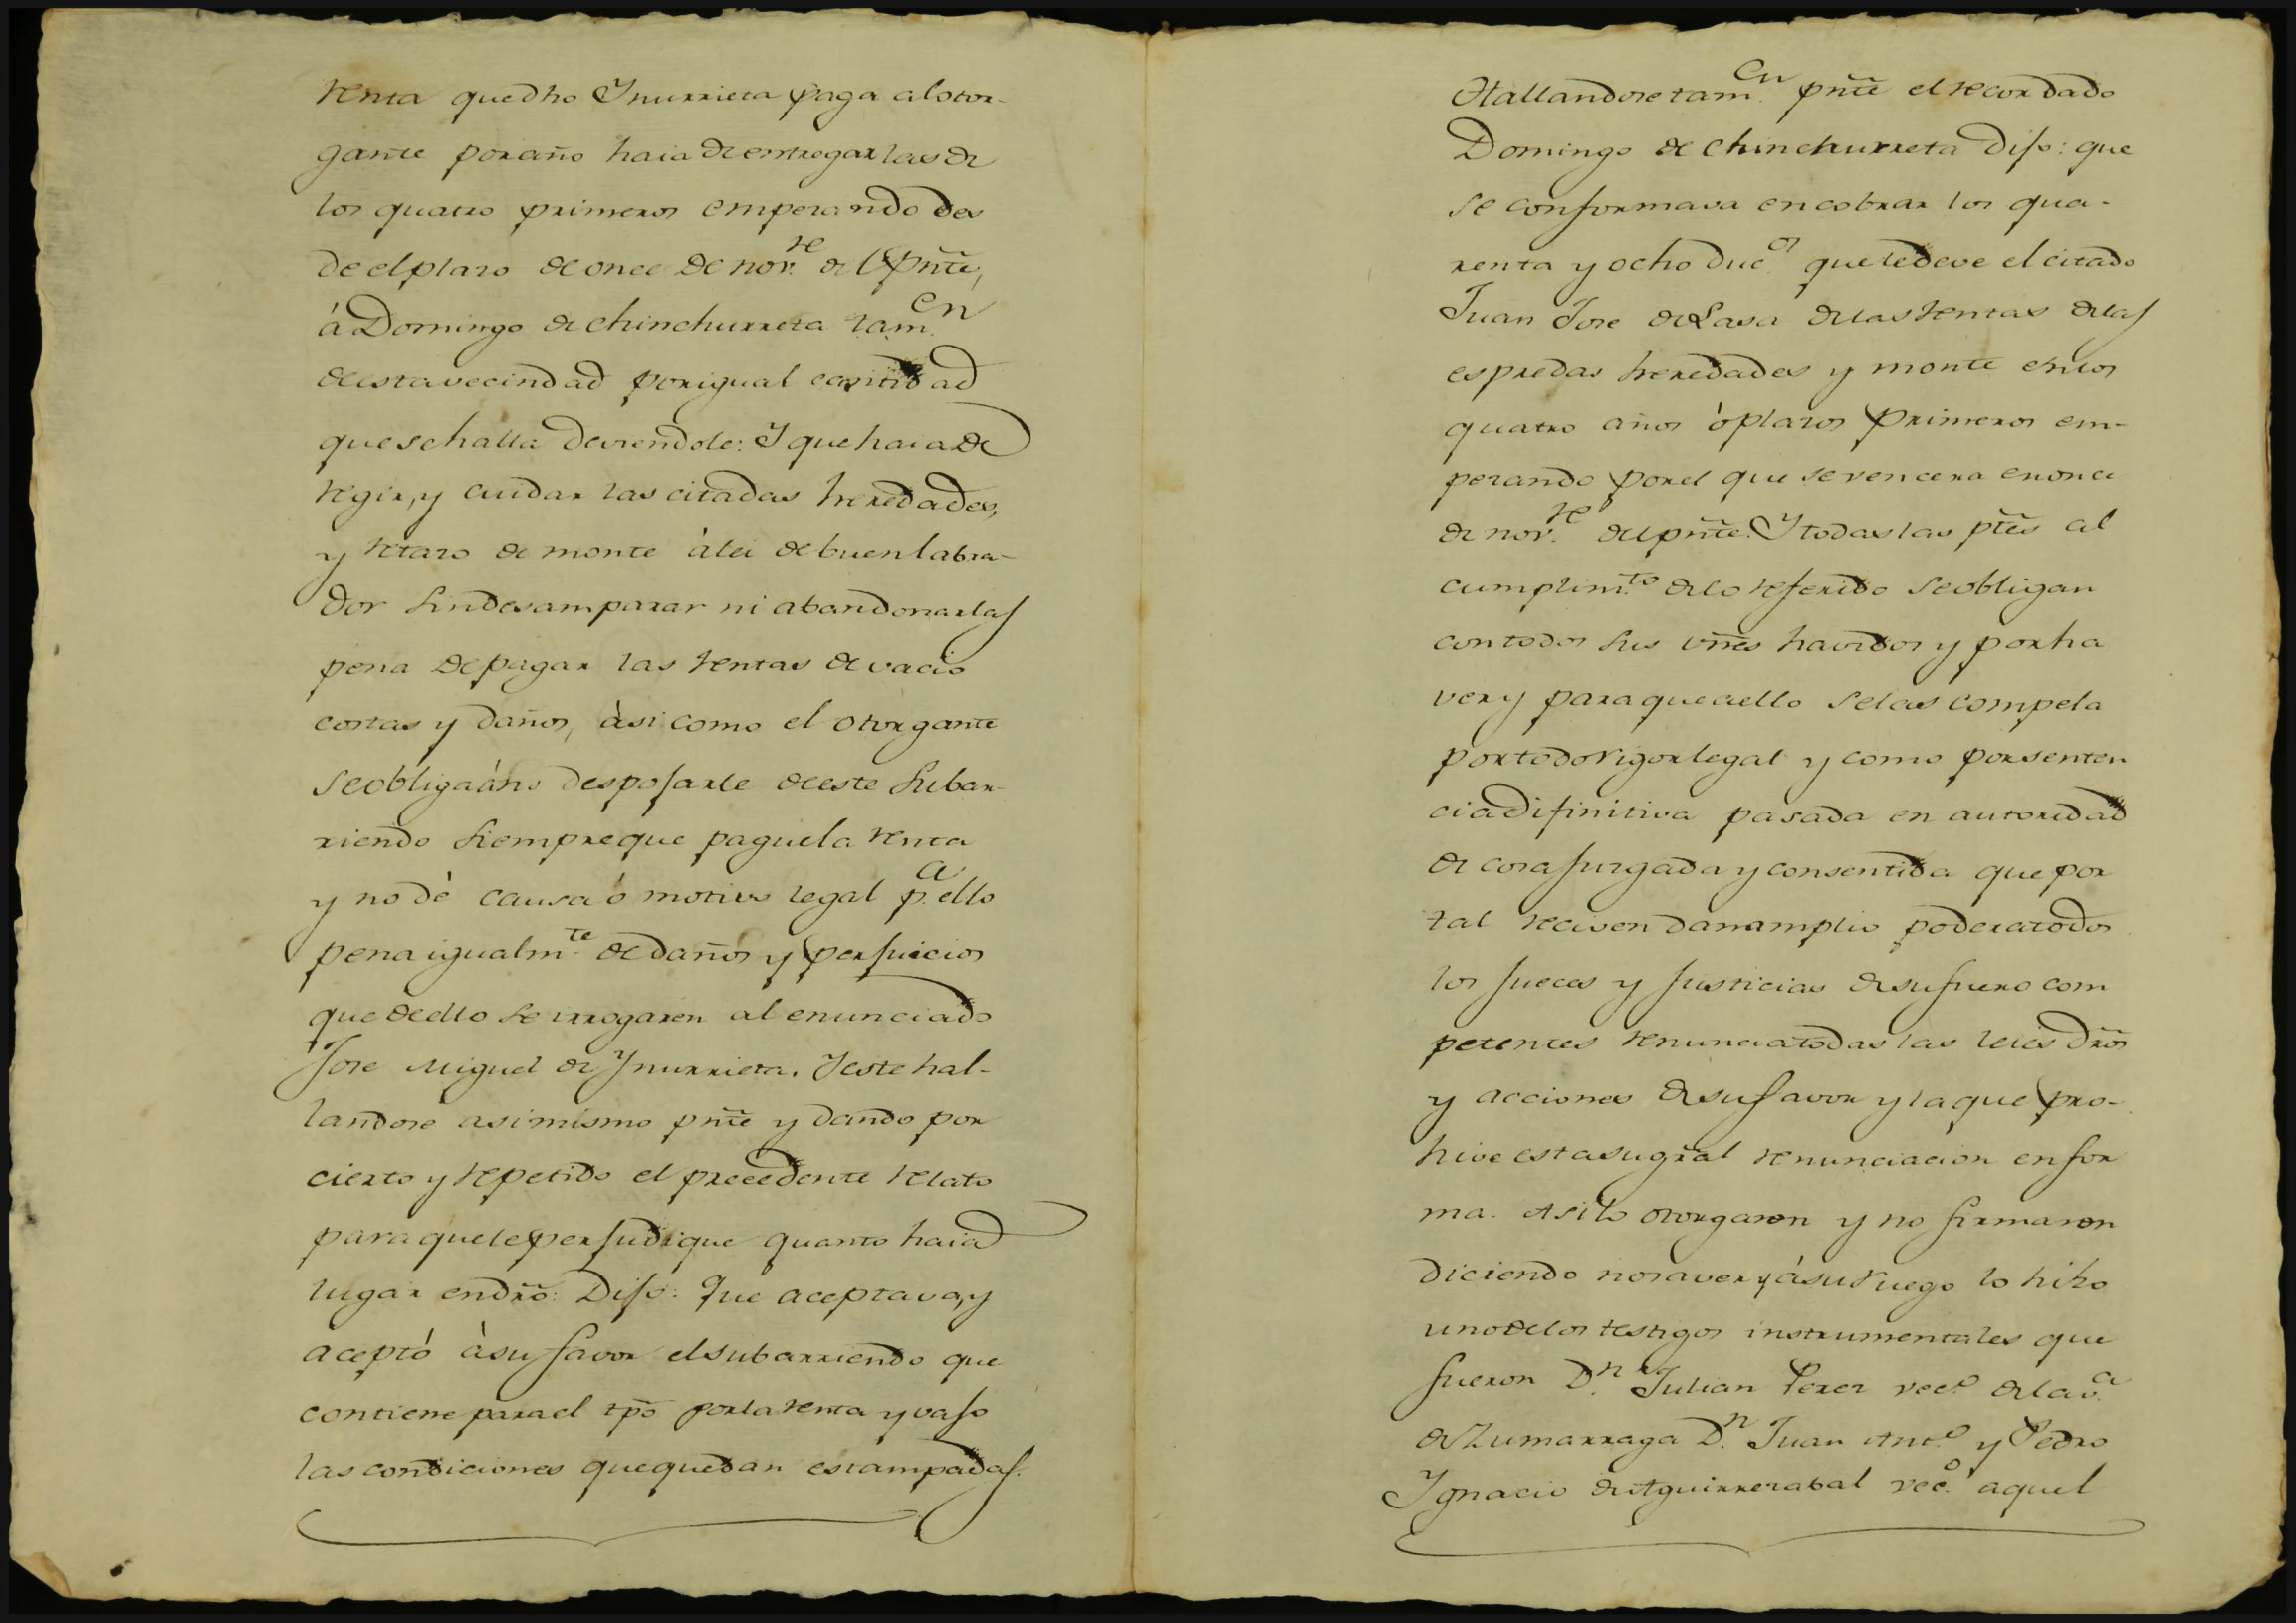 renta que dho Ynurrieta paga al otor-
gante por año haia de entregar las de
los quatro primeros empezando des
de el plazo de once de nov.re del pñte,
á Domingo de Chinchurreta tam.en
de esta vecindad por igual cantidad
que se halla deviendole: Y que haia de
regir, y cuidar las citadas heredades,
y retazo de monte à lei de buen labra-
dor sin desamparar ni abandonarlas
pena de pagar las rentas de vacio
costas y daños, àsi como el otorgante
se obliga àno despojarle de este subar-
riendo siempre que pague la renta
y no dè causa ó motivo legal p.a ello
pena igualm.te de daños y perjuicios
que de ello se irrogaren al enunciado
Jose Miguel de Ynurrieta. Y este hal-
landose asimismo pñte y dando por
cierto y repetido el precedente relato
para que le perjudique quanto haia
lugar en dr̃o: Dijo: Que aceptava, y
aceptó à su favor el subarriendo que
contiene para el tp̃o por la renta y vajo
las condiciones que quedan estampadas.
Hallandose tam.en pñte el recordado
Domingo de Chinchurreta Dijo: que
se conformava en cobrar los qua-
renta y ocho duc.os que le deve el citado
Juan Jose de Lasa de las rentas de las
espredas heredades y monte en los
quatro años ò plazos primeros em-
pezando por el que se vencera en once
de nov.re del pñte. Y todas las pt̃es al
cumplim.to de lo referido se obligan
con todos sus vñes havidos y por ha
ver y para que a ello se las compela
por todo rigor legal y como por senten
cia difinitiva pasada en autoridad
de cosa juzgada y consentida que por
tal reciven dan amplio poder a todos
los jueces y justicias de su fuero com
petentes renuncia todas las leies dr̃os
y acciones de su favor y la que pro-
hive esta su gr̃al renunciacion en for
ma. Asi lo otorgaron y no firmaron
diciendo no saver y à su ruego lo hizo
uno de los testigos instrumentales que
fueron D.n Julian Perez vec.o de la v.a
de Zumarraga D.n Juan Ant.o y Pedro
Ygnacio de Aguirrezabal vec.o aquel